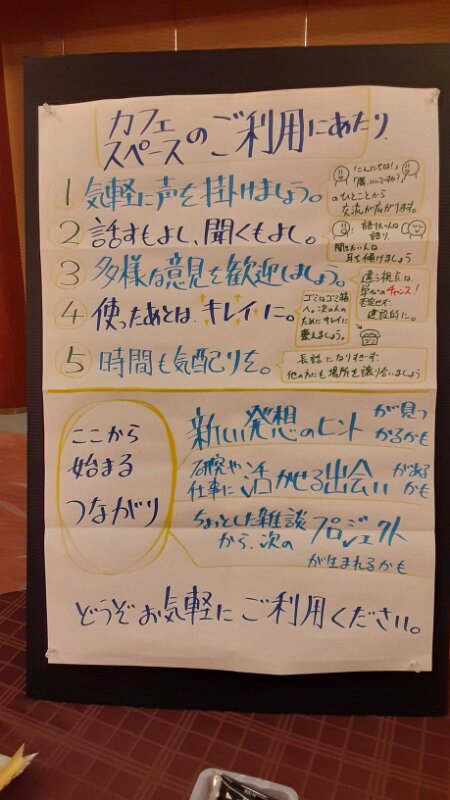 カフェ
スペースのご利用にあたり
1 気軽に声を掛けましょう。
「こんにちは!」
のひとことから
交流が広がります。
2 話すもよし、聞くもよし。
語りたい人は
語り、
聞きたい人は、
耳を傾けましょう
3 多様な意見を歓迎しましょう。
違う視点は、
学びのチャンス!
否定せず、
建設的に。
4 使ったあとは、キレイに。
ゴミはゴミ箱
へ。次の人の
ためにキレイに
整えましょう
5 時間も気配りを。
長話になりすぎず、
他の方にも場所を譲り合いましょう
ここから
始まる
つながり
新しい発想のヒントが見つ
かるかも
研究や
仕事に活かせる出会いがある
かも
ちょっとした雑談
から、次のプロジェクト
が生まれるかも
どうぞお気軽にご利用ください。